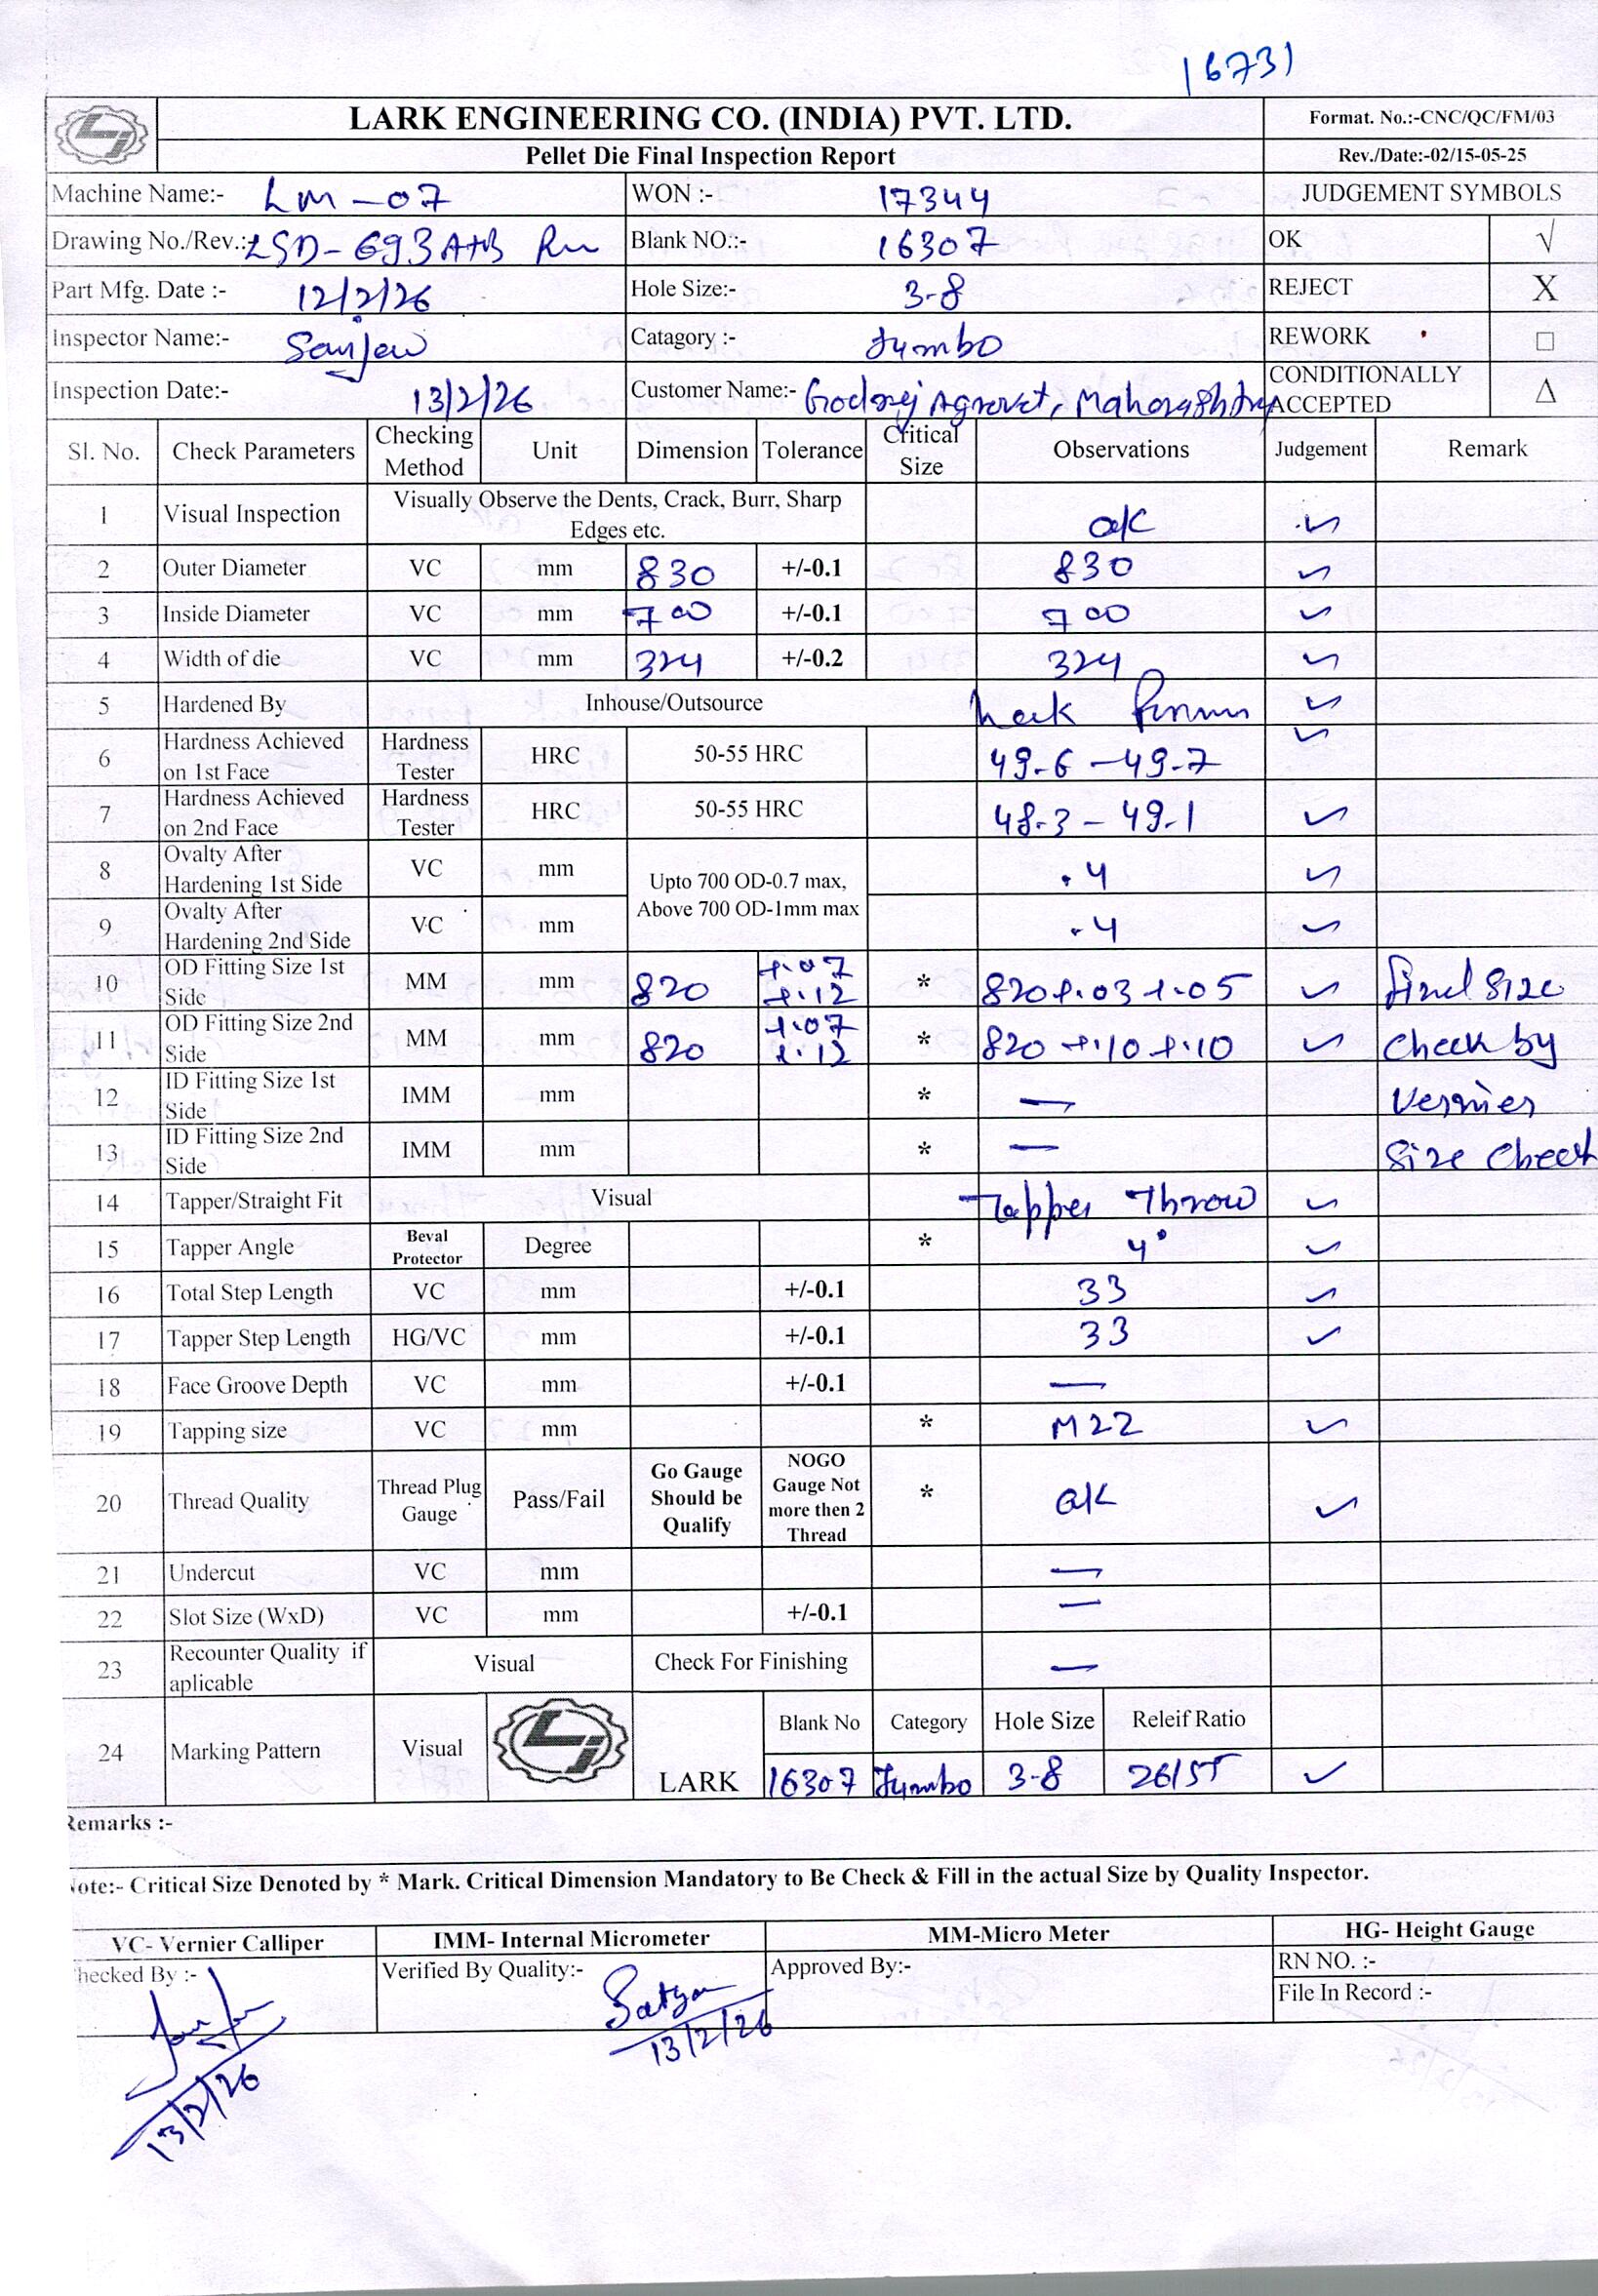 16731
LARK ENGINEERING CO. (INDIA) PVT. LTD. Format. No.:-CNC/QC/FM/03
Pellet Die Final Inspection Report Rev./Date:-02/15-05-25
Machine Name:- LM-07 WON :- 17344 JUDGEMENT SYMBOLS
Drawing No./Rev.: LSD-693A+B Blank NO.:- 16307 OK √
Part Mfg. Date :- 12/2/26 Hole Size:- 3-8 REJECT X
Inspector Name:- Sanjew Catagory :- Jumbo REWORK □
Inspection Date:- 13/2/26 Customer Name:- Godrej Agrovet, Maharashtra CONDITIONALLY ACCEPTED Δ
Sl. No. Check Parameters Checking Method Unit Dimension Tolerance Critical Size Observations Judgement Remark
1 Visual Inspection Visually Observe the Dents, Crack, Burr, Sharp Edges etc. ok ✓
2 Outer Diameter VC mm 830 +/-0.1 830 ✓
3 Inside Diameter VC mm 700 +/-0.1 700 ✓
4 Width of die VC mm 324 +/-0.2 324 ✓
5 Hardened By Inhouse/Outsource ✓
6 Hardness Achieved on 1st Face Hardness Tester HRC 50-55 HRC 49.6-49.7 ✓
7 Hardness Achieved on 2nd Face Hardness Tester HRC 50-55 HRC 48.3-49.1 ✓
8 Ovalty After Hardening 1st Side VC mm Upto 700 OD-0.7 max, Above 700 OD-1mm max .4 ✓
9 Ovalty After Hardening 2nd Side VC mm .4 ✓
10 OD Fitting Size 1st Side MM mm 820 +.07 +.12 * 820+.03+.05 ✓ final Size
11 OD Fitting Size 2nd Side MM mm 820 +.07 +.12 * 820+.10+.10 ✓ Check by
12 ID Fitting Size 1st Side IMM mm * — Vernier
13 ID Fitting Size 2nd Side IMM mm * — Size Check
14 Tapper/Straight Fit Visual Tapper Throw ✓
15 Tapper Angle Beval Protector Degree * 4° ✓
16 Total Step Length VC mm +/-0.1 33 ✓
17 Tapper Step Length HG/VC mm +/-0.1 33 ✓
18 Face Groove Depth VC mm +/-0.1 —
19 Tapping size VC mm * M22 ✓
20 Thread Quality Thread Plug Gauge Pass/Fail Go Gauge Should be Qualify NOGO Gauge Not more then 2 Thread * ok ✓
21 Undercut VC mm —
22 Slot Size (WxD) VC mm +/-0.1 —
23 Recounter Quality if aplicable Visual Check For Finishing —
24 Marking Pattern Visual LARK Blank No Category Hole Size Releif Ratio
16307 Jumbo 3-8 26/5T ✓
Remarks :-
Note:- Critical Size Denoted by * Mark. Critical Dimension Mandatory to Be Check & Fill in the actual Size by Quality Inspector.
VC- Vernier Calliper IMM- Internal Micrometer MM-Micro Meter HG- Height Gauge
Checked By :- Verified By Quality:- Satyam Approved By:- RN NO. :-
File In Record :-
13/2/26
13/2/26